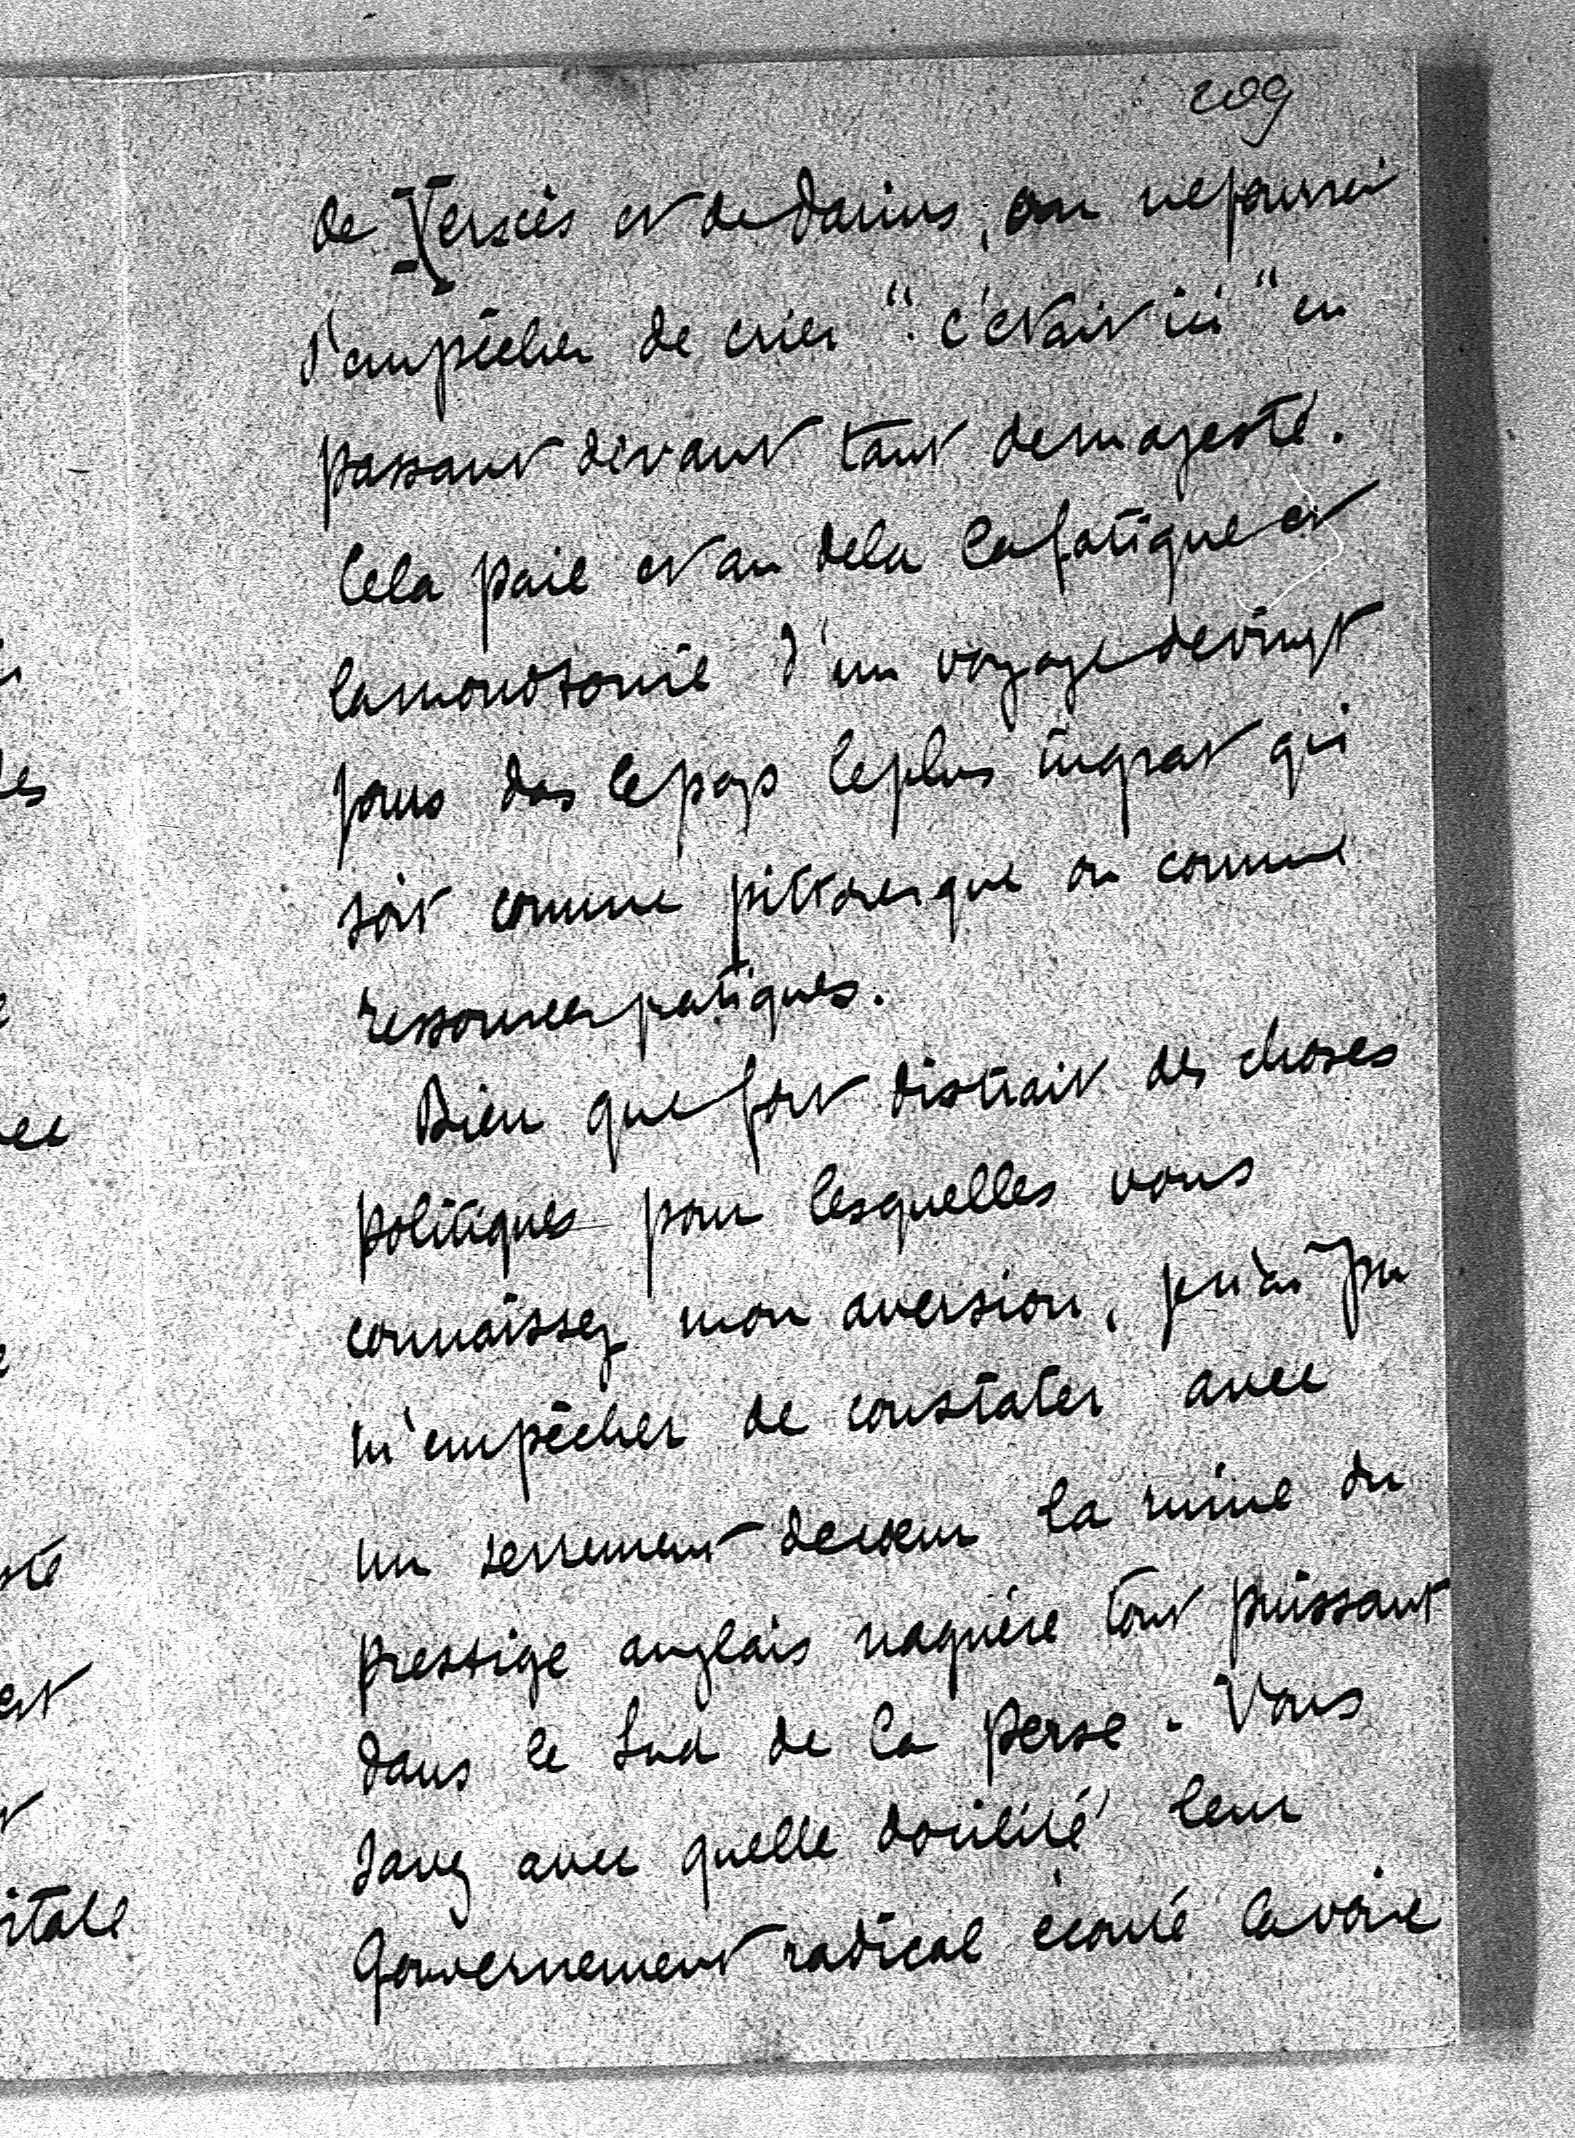 209
de Xerxès et de Darius, on ne pourrai
s'empêcher de crier "c'était ici" en
passant devant tant de majesté.
Cela paie et au dela la fatigue et
la monotonie d'un voyage de vingt
jours das le pays le plus ingrat qui
soit comme pittoresque ou comme
ressources pratiques.
Bien que fort distrait des choses
politiques pour lesquelles vous
connaissez mon aversion, je n'ai pu
m'empêcher de constater avec
un serrement de cœur la ruine du
prestige anglais naguère tout puissant
dans le Sud de la Perse. Vous
savez avec quelle docilité leur
Gouvernement radical écouté la voix
es
ee
sté
est
itale